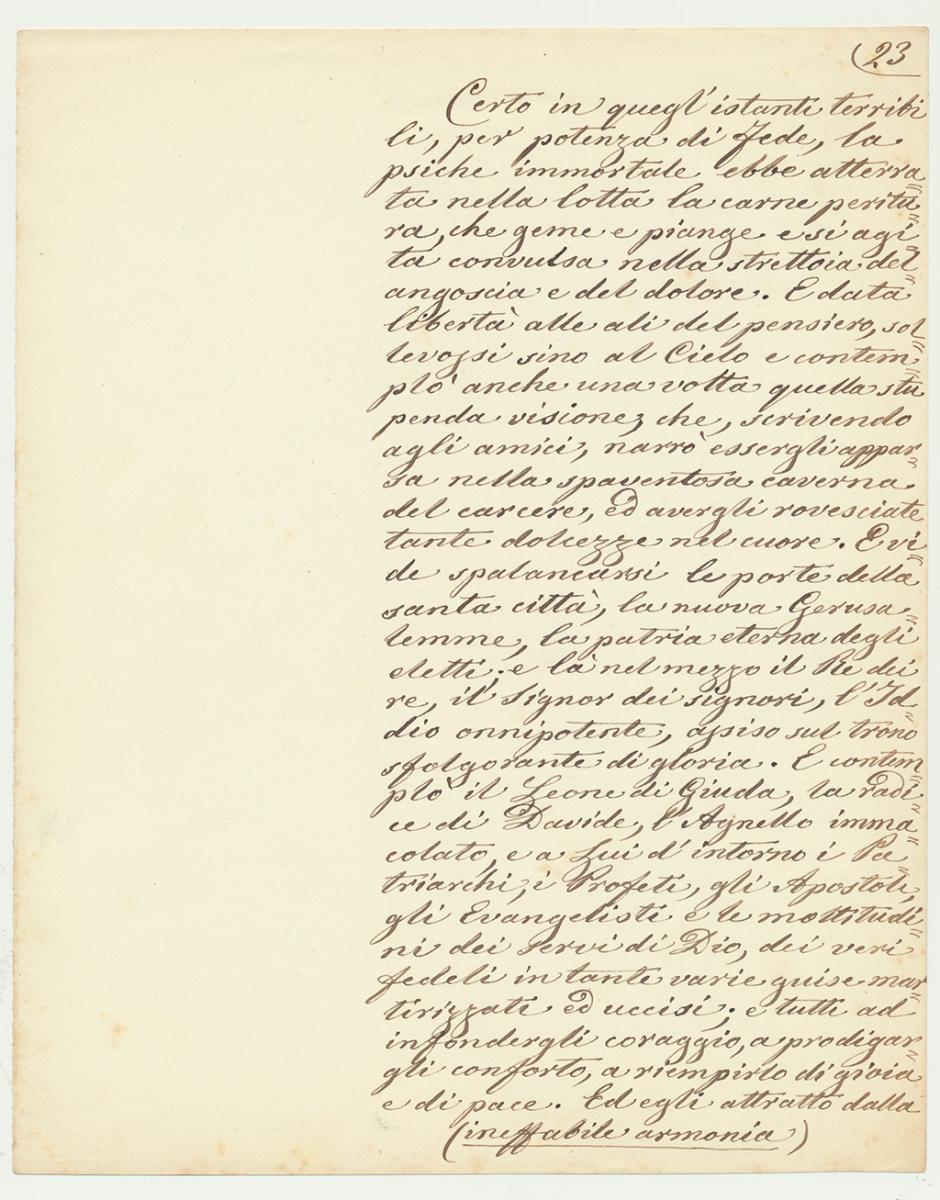 (23
Certo in quegl'istanti terribi
li, per potenza di Fede, la
psiche immortale ebbe atterra
ta nella lotta la carne peritu
ra, che geme e piange e si agi
ta convulsa nella strettoia del
angoscia e del dolore. E data
libertà alle ali del pensiero, sol
levossi sino al Cielo e contem
plò anche una volta quella stu
penda visione, che, scrivendo
agli amici, narrò essergli appar
sa nella spaventosa caverna
del carcere, ed avergli rovesciate
tante dolcezze nel cuore. E vi
de spalancarsi le porte della
santa città, la nuova Gerusa
lemme, la patria eterna degli
eletti; e là nel mezzo il Re dei
re, il Signor dei signori, l'Id
dio onnipotente, assiso sul trono
sfolgorante di gloria. E contem
plò il Leone di Giuda, la radi
ce di Davide, l'Agnello imma
colato, e a Lui d'intorno i Pa
triarchi, i Profeti, gli Apostoli,
gli Evangelisti e le moltitudi
ni dei servi di Dio, dei veri
fedeli in tante varie guise mar
tirizzati ed uccisi; e tutti ad
infondergli coraggio, a prodigar
gli conforto, a riempirlo di gioia
e di pace. Ed egli attratto dalla
(ineffabile armonia)